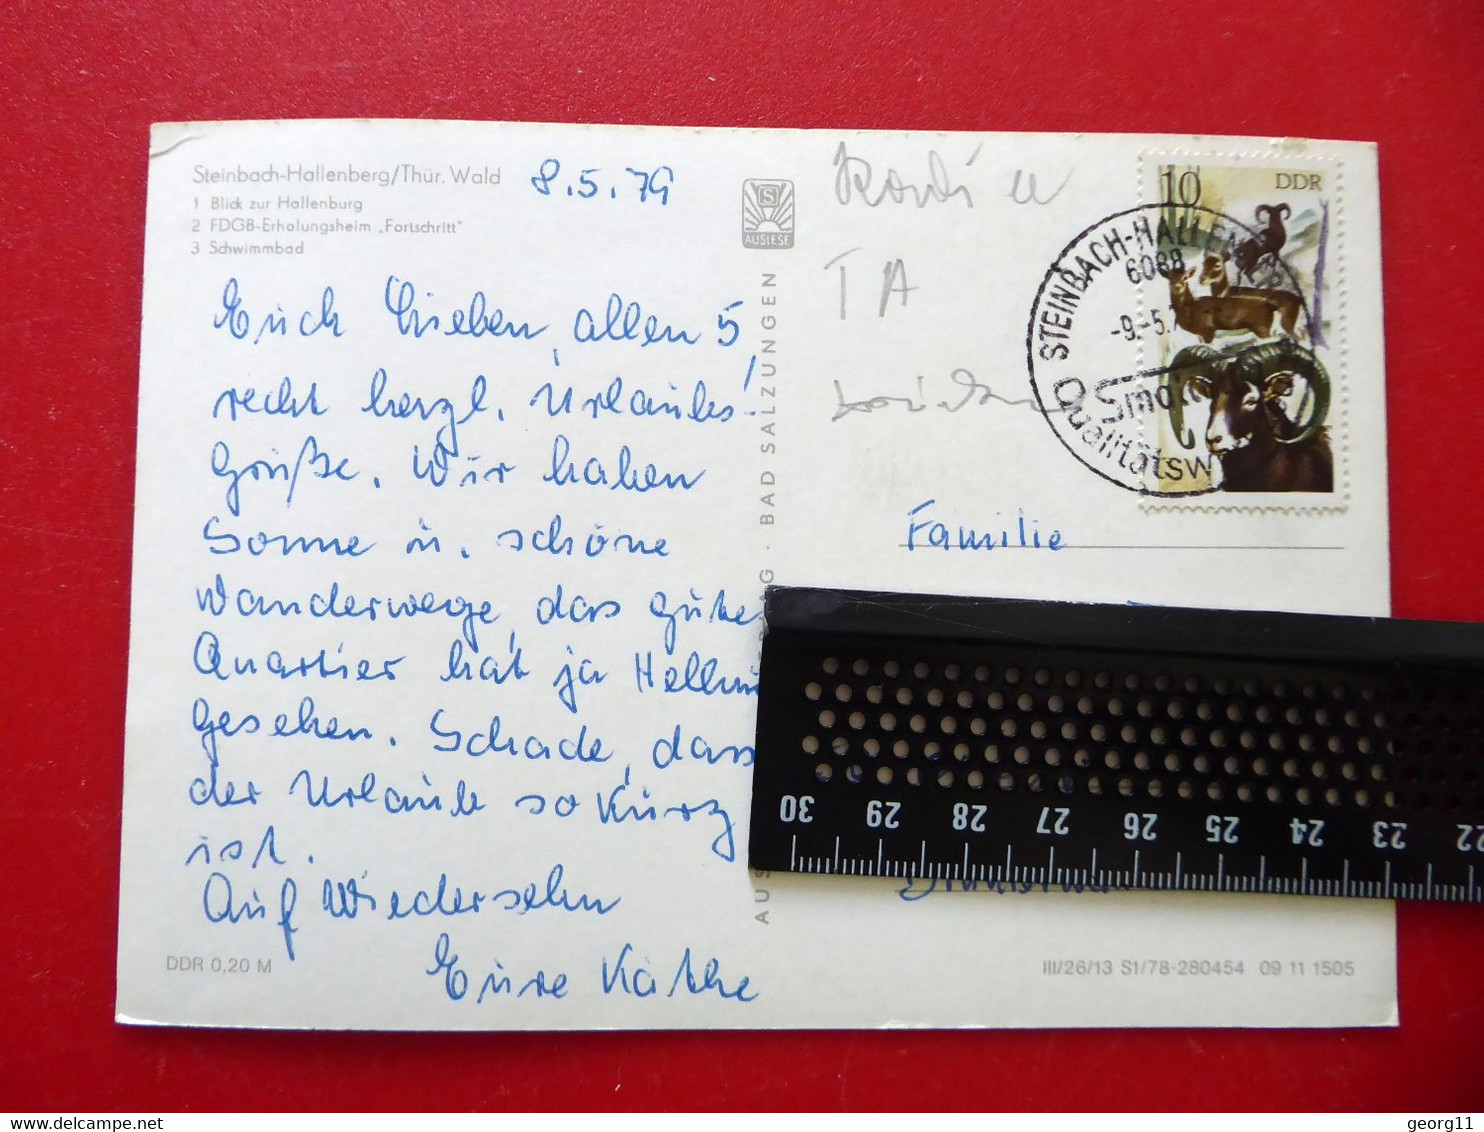 Steinbach-Hallenberg/Thür. Wald
1 Blick zur Hallenburg
2 FDGB-Erholungsheim „Fortschritt"
3 Schwimmbad
8.5.79
Euch Lieben, allen 5,
recht herzl. Urlaubs-
Grüße. Wir haben
Sonne u. schöne
Wanderwege, das gute
Quartier hat ja Hellmu
gesehen. Schade, dass
der Urlaub so kurz
ist.
Auf Wiedersehn
Eure Käthe
DDR 0,20 M
S
AUSLESE
BAD SALZUNGEN
AUS
TA
10 DDR
STEINBACH-HALLEN
6088
-9.-5.7
Smal
Qualitätsw
Familie
30 29 28 27 26 25 24 23 22
III/26/13 S1/78-280454 09 11 1505
georg11